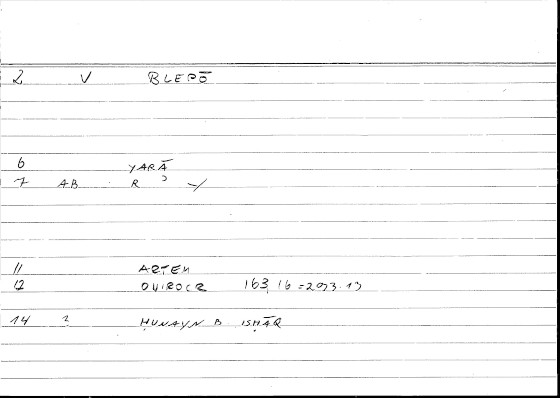 2 V BLEPŌ
6 YARĀ
7 AB R ʾ y
11 ARTEM
12 ONIROCR 163, 16 = 293.13
14 ? ḤUNAYN B ISḤĀQ